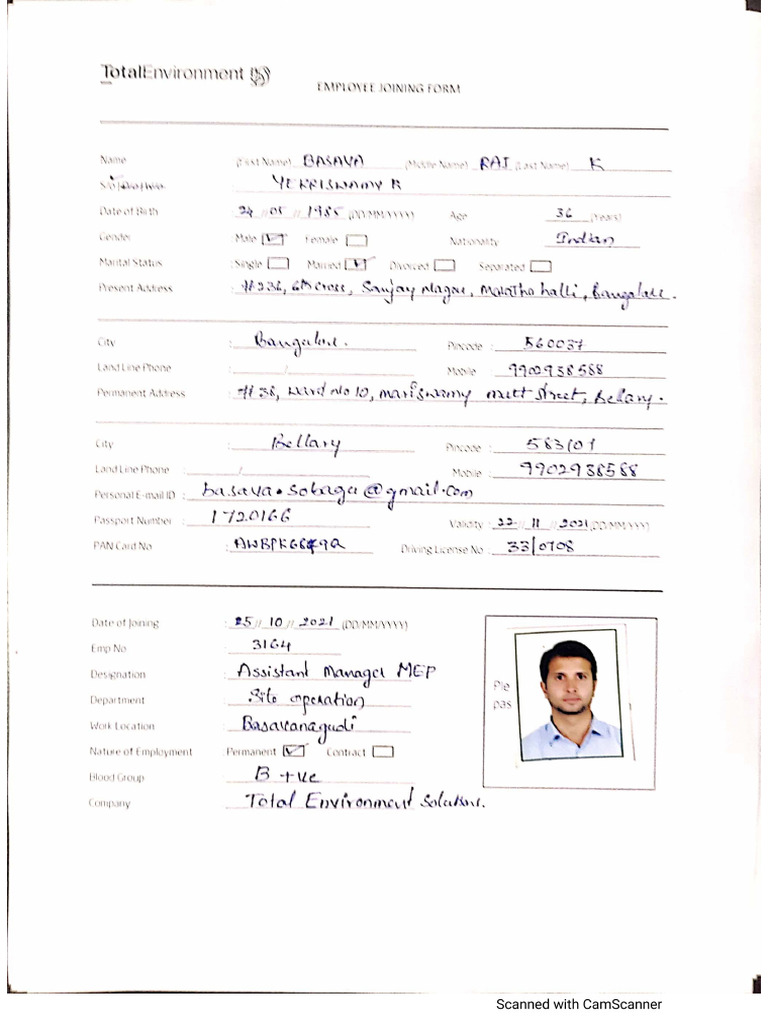 TotalEnvironment
EMPLOYEE JOINING FORM
Name (First Name) BASAVA (Middle Name) RAJ (Last Name) K
S/o
Date of Birth : 24 // 05 // 1985 (DD/MM/YYYY) Age 36 (Years)
Gender Male Female Nationality : Indian
Marital Status : Single Married Divorced Separated
Present Address : #236, 6th cross, Sanjay Nagar, Bangalore.
City : Bangalore. Pincode : 560037
Land Line Phone : / Mobile : 9902938588
Permanent Address : #38, ward no 10, Mariswamy mutt street, Bellary.
City : Bellary Pincode : 583101
Land Line Phone : / Mobile : 9902938588
Personal E-mail ID : @gmail.com
Passport Number : 1720166 Validity : 22 // 11 // 2021 (DD/MM/YYYY)
PAN Card No : Driving License No : 33/0708
Date of Joining : 25 // 10 // 2021 (DD/MM/YYYY)
Emp No : 3164
Designation : Assistant Manager MEP
Department : Site operation
Work Location : Basavanagudi
Nature of Employment Permanent Contract
Blood Group : B +ve
Company : Total Environment
Ple
pas
Scanned with CamScanner